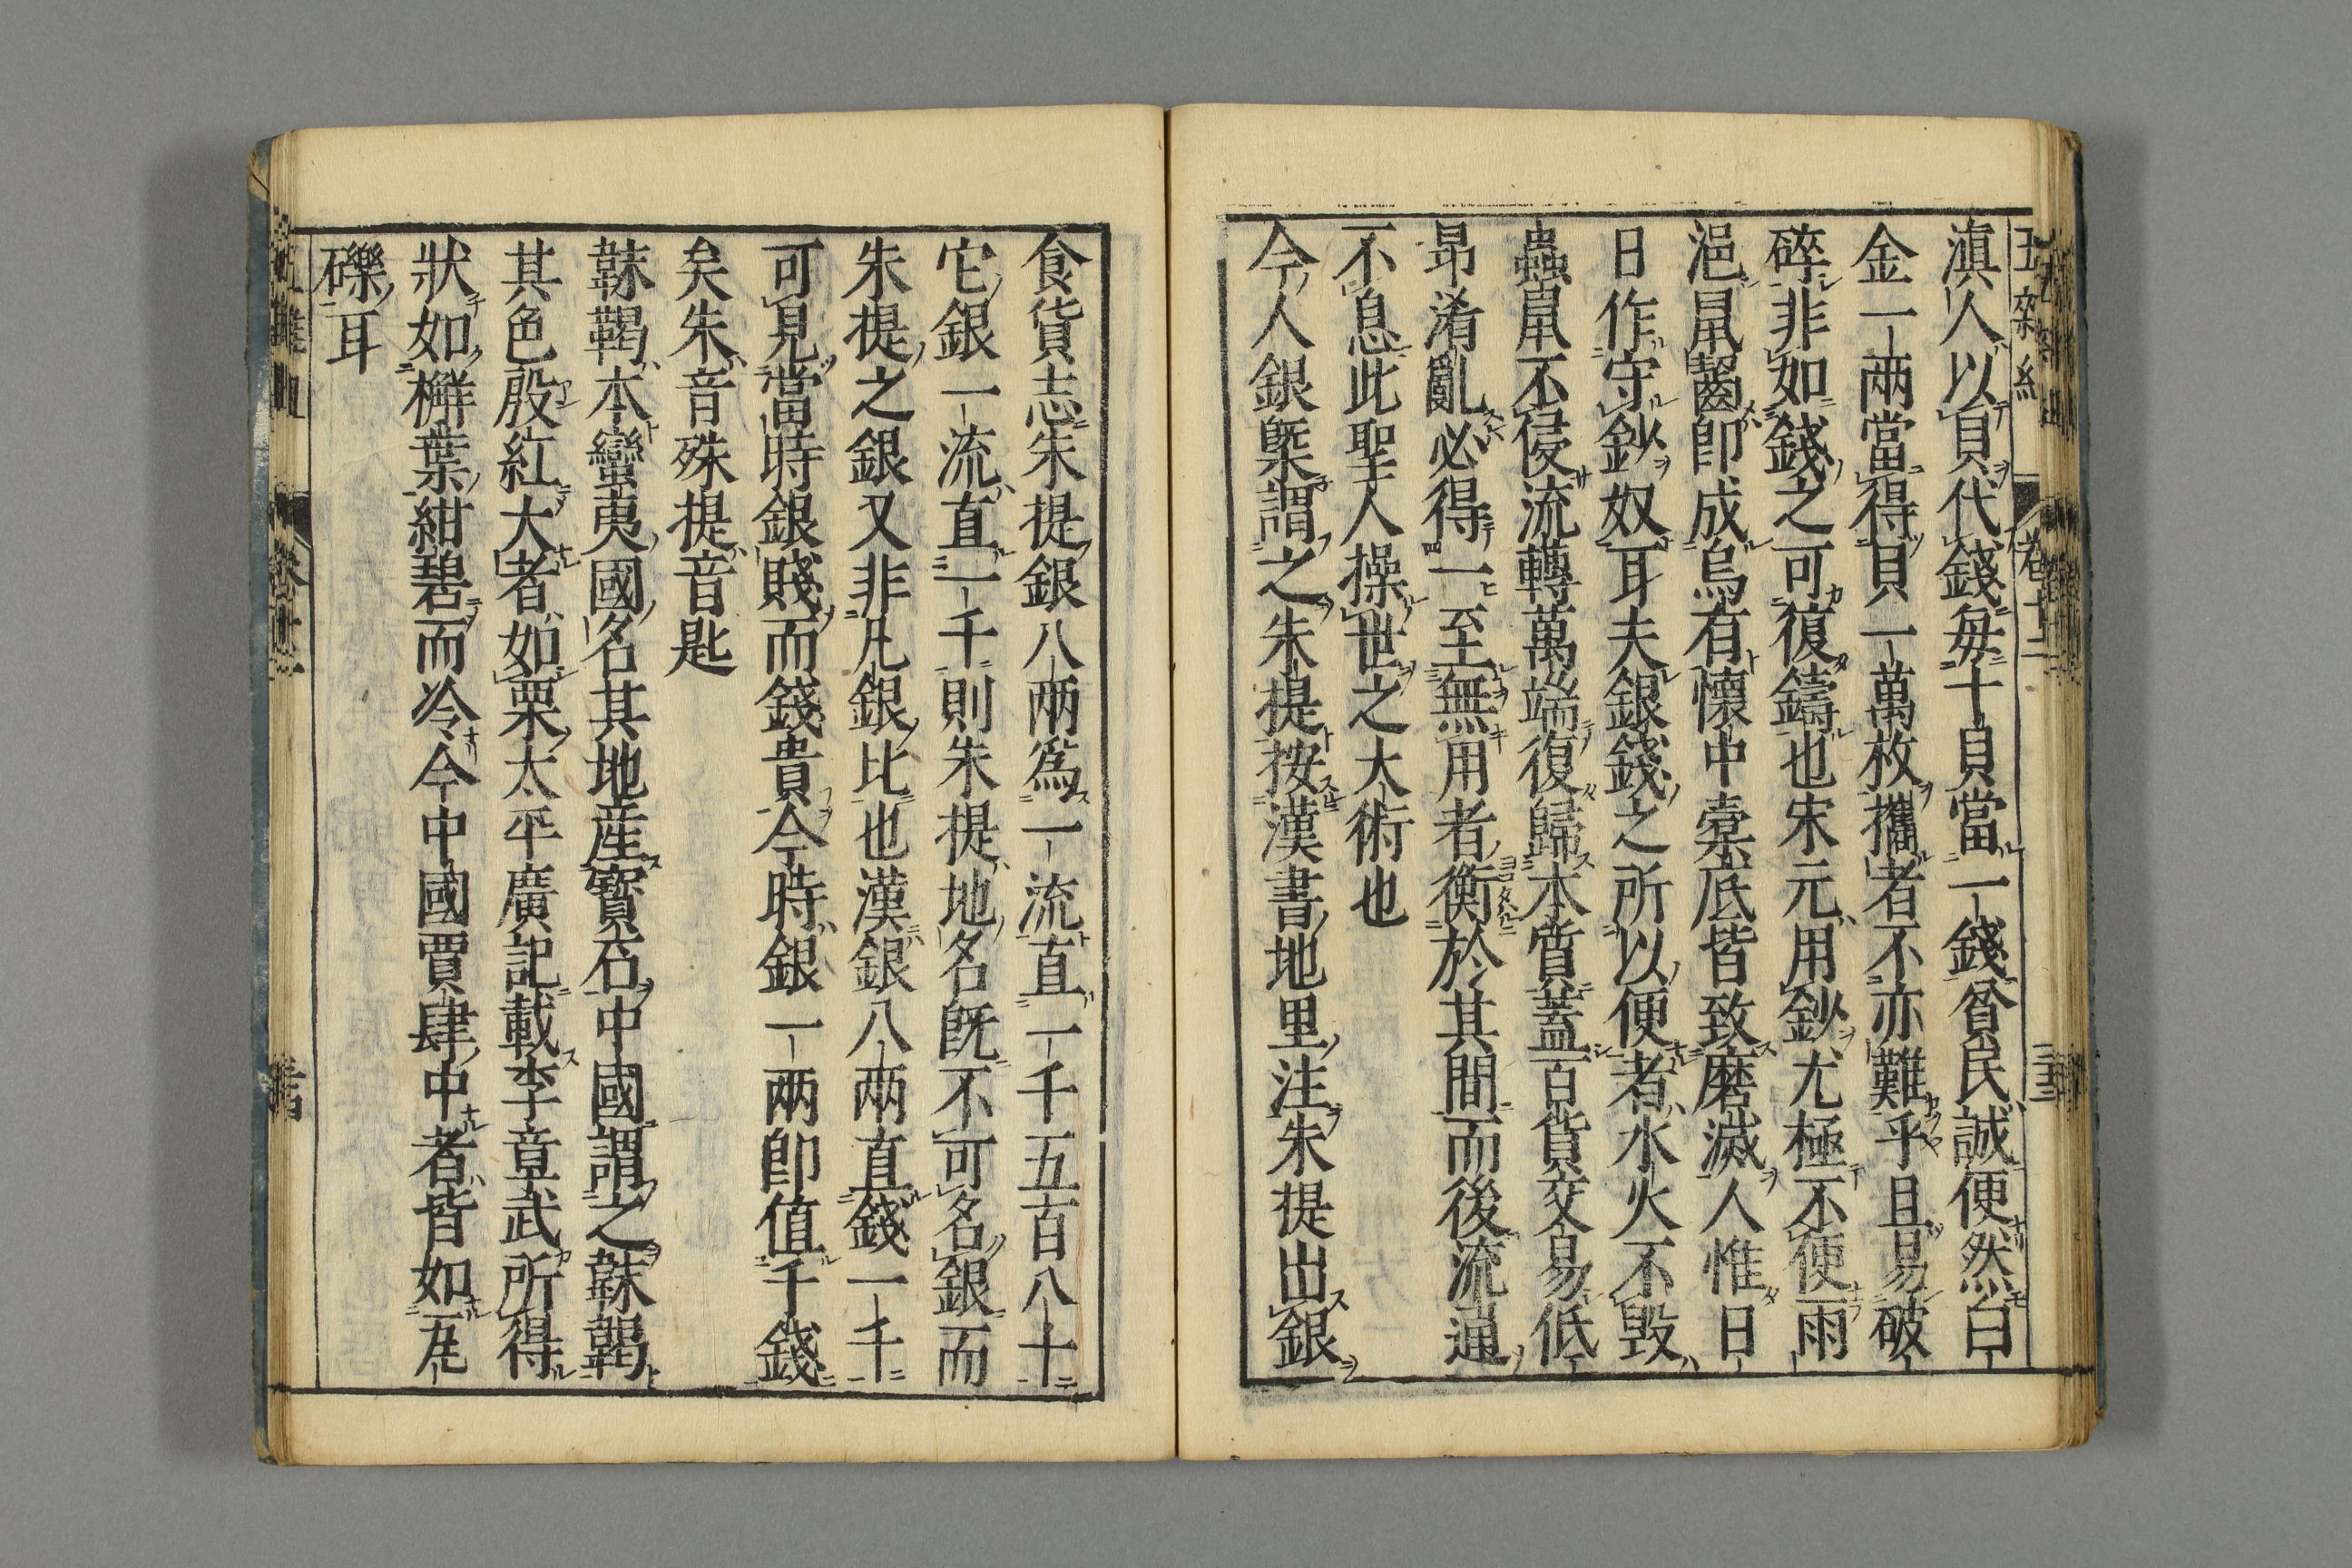 滇人以貝代錢每十貝當一錢貧民誠便然白
金一兩當得貝一萬枚攜者不亦難乎且易破
碎非如錢之可復鑄也宋元用鈔尤極不便雨
浥鼠齧即成烏有懷中橐底皆致磨滅人惟日
日作守鈔奴耳夫銀錢之所以便者水火不毀
蟲鼠不侵流轉萬端復歸本質蓋百貨交易低
昻淆亂必得一至無用者衡於其間而後流通
不息此聖人操世之大術也
今人銀槩謂之朱提按漢書地里注朱提出銀
食貨志朱提銀八兩爲一流直一千五百八十
它銀一流直一千則朱提地名既不可名銀而
朱提之銀又非凡銀比也漢銀八兩直錢一千
可見當時銀賤而錢貴今時銀一兩即值千錢
矣朱音殊提音匙
靺鞨本蠻夷國名其地產寶石中國謂之靺鞨
其色殷紅大者如栗太平廣記載李章武所得
狀如槲葉紺碧而冷今中國賈肆中者皆如瓦
礫耳